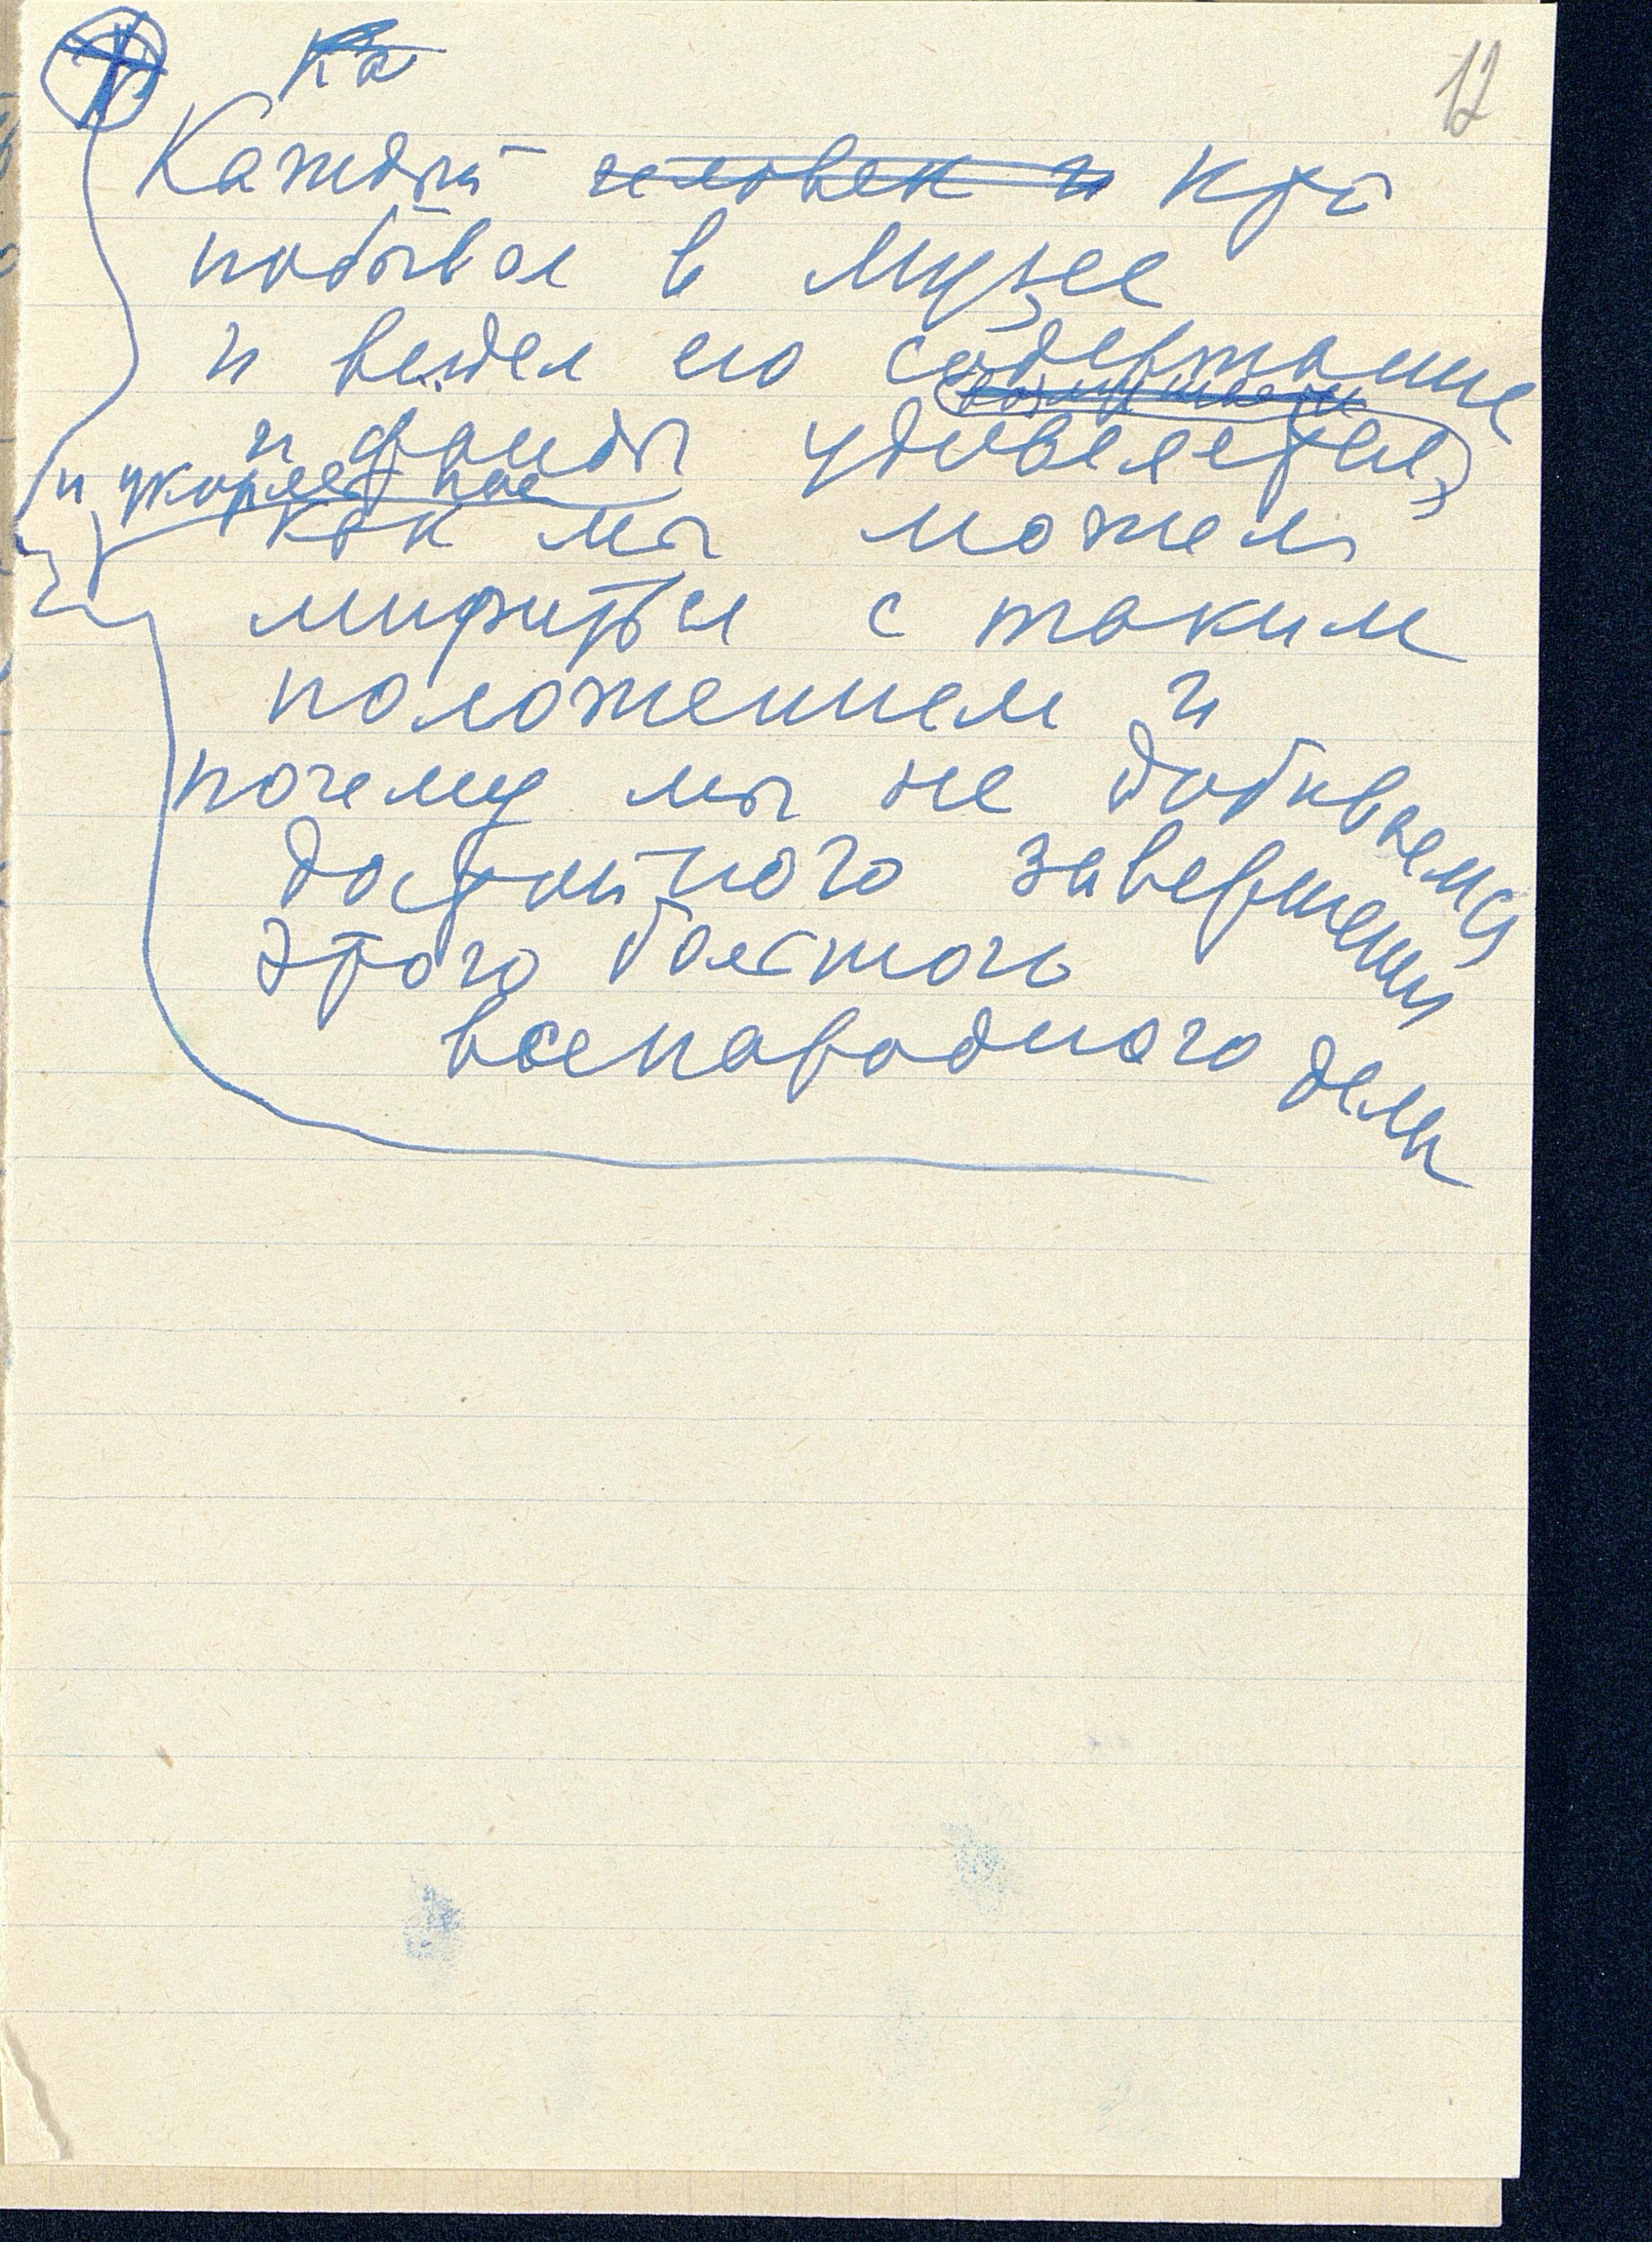 12
Ка
Каждый человек и кто
побывал в Музее
и видел его содержание
и фонды удивляется,
и укоряет нас
как мы можем
мириться с таким
положением и
почему мы не добиваемся
достойного завершения
этого большого
всенародного дела